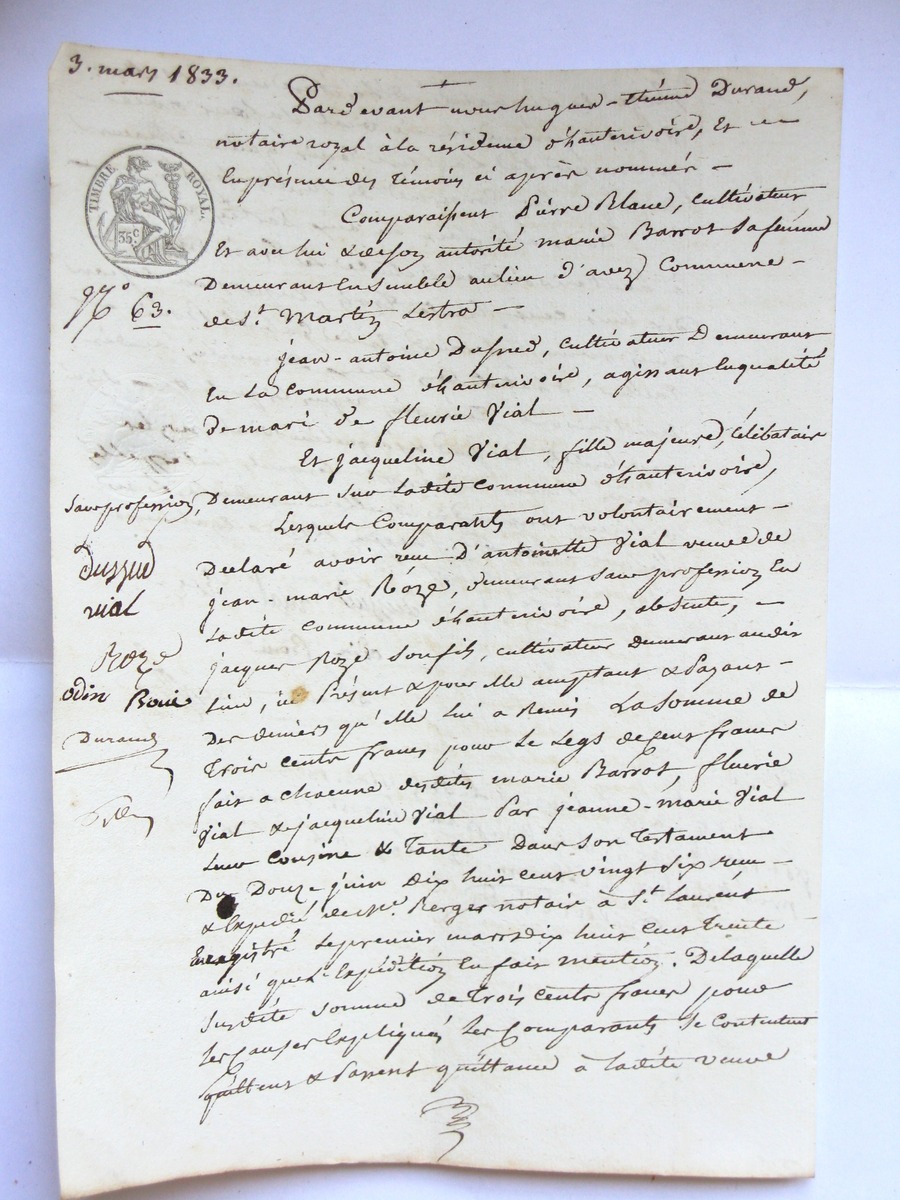 3. mars 1833.
Pardevant nous hugues-étienne Durand,
notaire royal à la résidence d'hauterivoire, Et
En présence des témoins ci après nommés —
TIMBRE ROYAL.
35 c
Comparaissent Pierre Blanc, cultivateur
Et avec lui & de son autorité marie Barrot sa femme
Demeurant Ensemble au lieu d'avez Commune —
de St. Martin Lestra —
N.o 63.
jean-antoine Dussud, cultivateur Demeurant
En La commune d'hauterivoire, agissant En qualité
De mari de fleurie Vial —
Et jacqueline Vial, fille majeure, célibataire
sans profession, Demeurant sur Ladite commune d'hauterivoire,
Lesquels Comparants ont volontairement —
Declaré avoir reçu D'antoinette Vial veuve de
jean-marie Roze, demeurant sans profession En
Ladite commune d'hauterivoire, absente, —
jacques Roze son fils, cultivateur demeurant audit
Lieu, ici Présent & pour Elle acceptant & Payant —
Des deniers qu'elle Lui a Remis La somme de
Trois cents francs pour Le Legs de Cent francs
fait a chacune desdites marie Barrot, fleurie
Vial & jacqueline Vial Par jeanne-marie Vial
Leur Cousine & Tante Dans son Testament
Du Douze juin Dix huit cent vingt six reçu —
& Expedié de Me. Berger notaire à St. Laurent
Enregistré Le premier mars dix huit cent trente
ainsi que l'Expédition En fait mention. De laquelle
susdite somme de Trois cents francs pour
Les causes Expliquées Les Comparants se Contentent
quittent & Passent quittance à Ladite veuve
dussud
vial
Roze
odin Boue
Durand